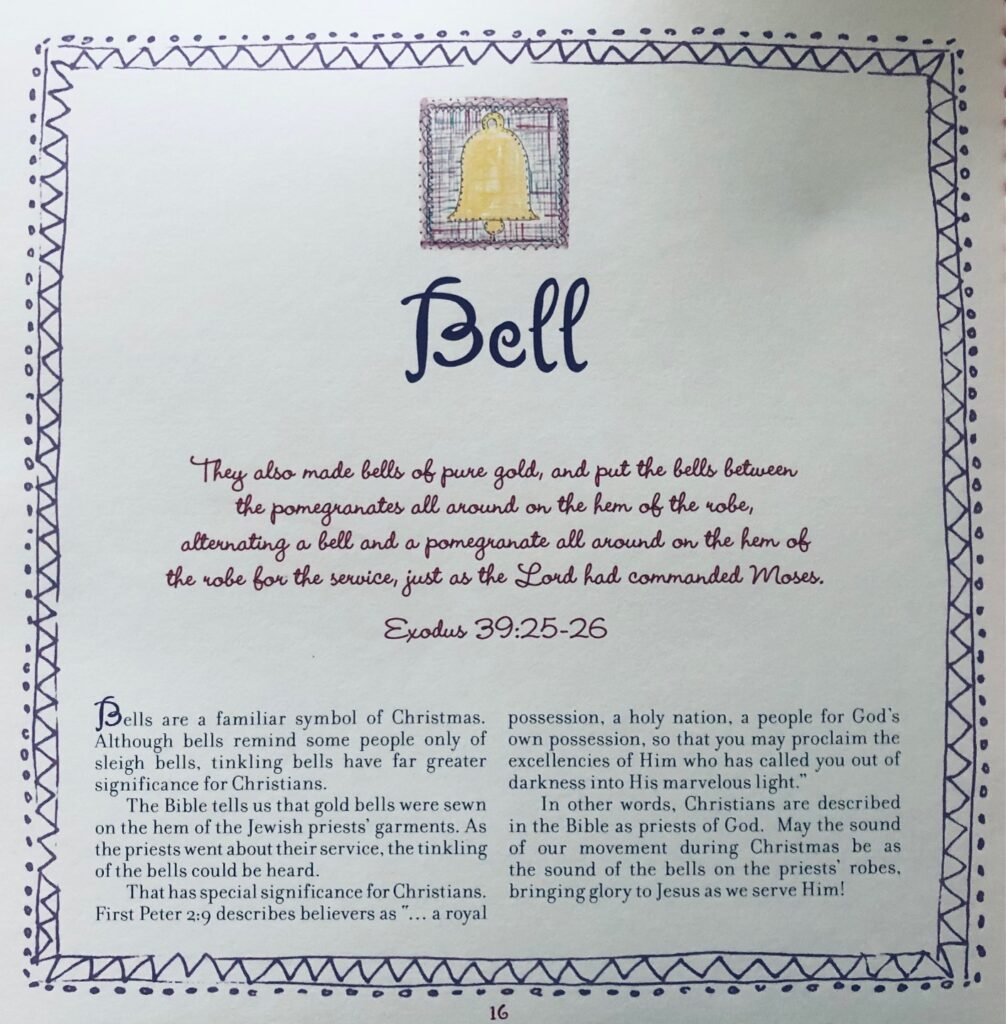 Bell
They also made bells of pure gold, and put the bells between
the pomegranates all around on the hem of the robe,
alternating a bell and a pomegranate all around on the hem of
the robe for the service, just as the Lord had commanded Moses.
Exodus 39:25-26
Bells are a familiar symbol of Christmas.
Although bells remind some people only of
sleigh bells, tinkling bells have far greater
significance for Christians.
The Bible tells us that gold bells were sewn
on the hem of the Jewish priests' garments. As
the priests went about their service, the tinkling
of the bells could be heard.
That has special significance for Christians.
First Peter 2:9 describes believers as "... a royal
possession, a holy nation, a people for God's
own possession, so that you may proclaim the
excellencies of Him who has called you out of
darkness into His marvelous light."
In other words, Christians are described
in the Bible as priests of God. May the sound
of our movement during Christmas be as
the sound of the bells on the priests' robes,
bringing glory to Jesus as we serve Him!
16